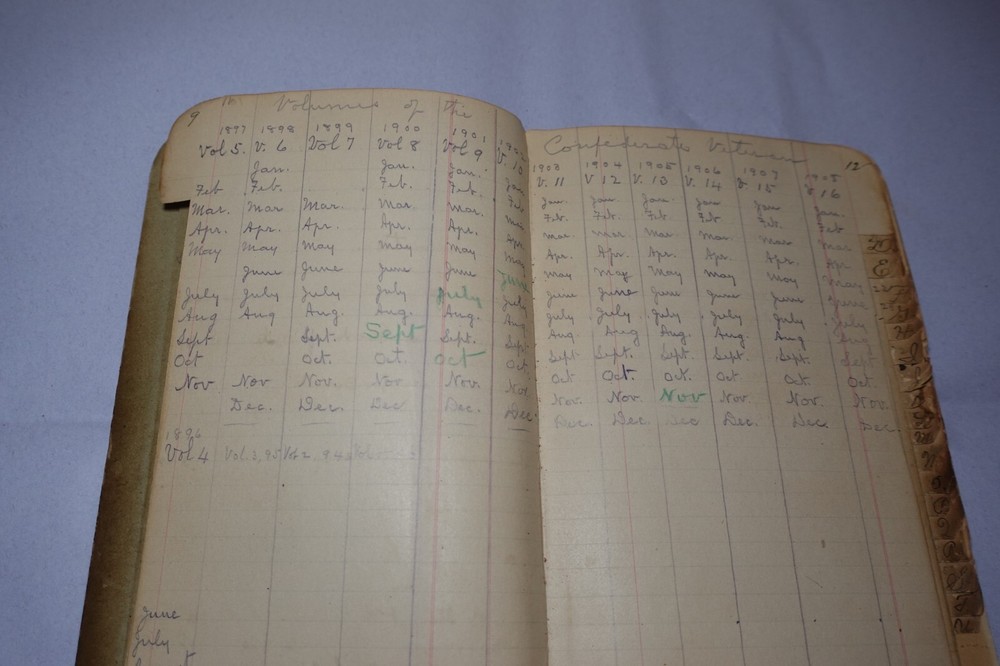 9 Volumes of the
1897 1898 1899 1900 1901
Vol 5. V. 6 Vol 7 Vol 8 Vol 9 V. 10
Jan. Jan. Jan. Jan
Feb Feb. Feb. Feb. Feb
Mar. Mar Mar. Mar Mar.
Apr. Apr. Apr. Apr. Apr. Apr.
May May May May May May
June June June June June
July July July July July July
Aug Aug Aug Aug. Aug. Aug
Sept Sept. Sept Sept. Sept
Oct Oct. Oct. Oct Oct.
Nov Nov Nov. Nov Nov. Nov.
Dec. Dec. Dec Dec. Dec.
1896
Vol 4 Vol. 3, 95 Vol 2, 94
June
July
Confederate Veteran 12
1903 1904 1905 1906 1907 1908
V. 11 V 12 V. 13 V. 14 V. 15 V 16
Jan. Jan Jan. Jan Jan Jan.
Feb. Feb. Feb Feb Feb. Feb
Mar. Mar. Mar. Mar. Mar Mar
Apr. Apr. Apr. Apr. Apr. Apr
May May May May May May
June June June June June June
July July July July July July
Aug Aug Aug. Aug Aug Aug
Sept Sept. Sept. Sept. Sept. Sept
Oct Oct. Oct. Oct Oct. Oct.
Nov. Nov Nov Nov Nov. Nov.
Dec. Dec. Dec Dec. Dec. Dec